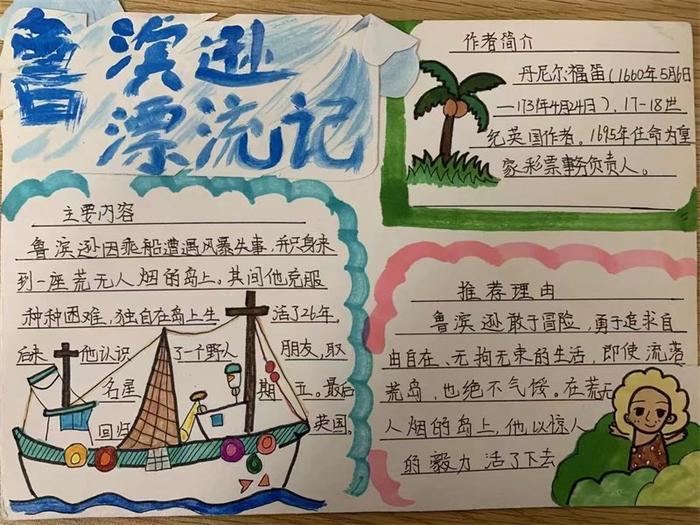 鲁滨逊
漂流记
作者简介
丹尼尔福笛(1660年5月6日
—1731年4月24日),17-18世
纪英国作者。1695年任命为皇
家彩票事务负责人。
主要内容
鲁滨逊因乘船遭遇风暴失事,并只身来
到一座荒无人烟的岛上。其间他克服
种种困难,独自在岛上生活了26年,
后来他认识了一个野人朋友,取
名星期五。最后
回归英国。
推荐理由
鲁滨逊敢于冒险,勇于追求自
由自在、无拘无束的生活,即使流落
荒岛,也绝不气馁。在荒无
人烟的岛上,他以惊人
的毅力活了下去